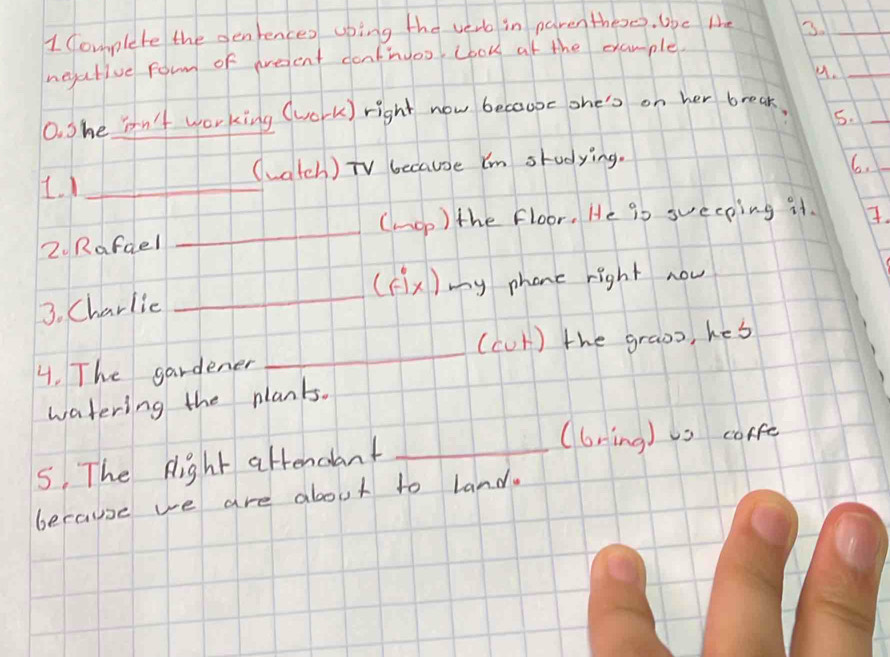 1 Complete the sentences using the verb in parentheses. Use the
negative form of present continuos. Look at the example.
0. She isn't working (work) right now because she's on her break.
1. I ____________ (watch) TV because I'm studying.
2. Rafael ____________ (mop) the floor. He is sweeping it.
3. Charlie ____________ (fix) my phone right now
4. The gardener ____________ (cut) the grass, he's
watering the plants.
5. The flight attendant ____________ (bring) us coffe
because we are about to land.
3. ____
4. ____
5. ____
6. ____
7.